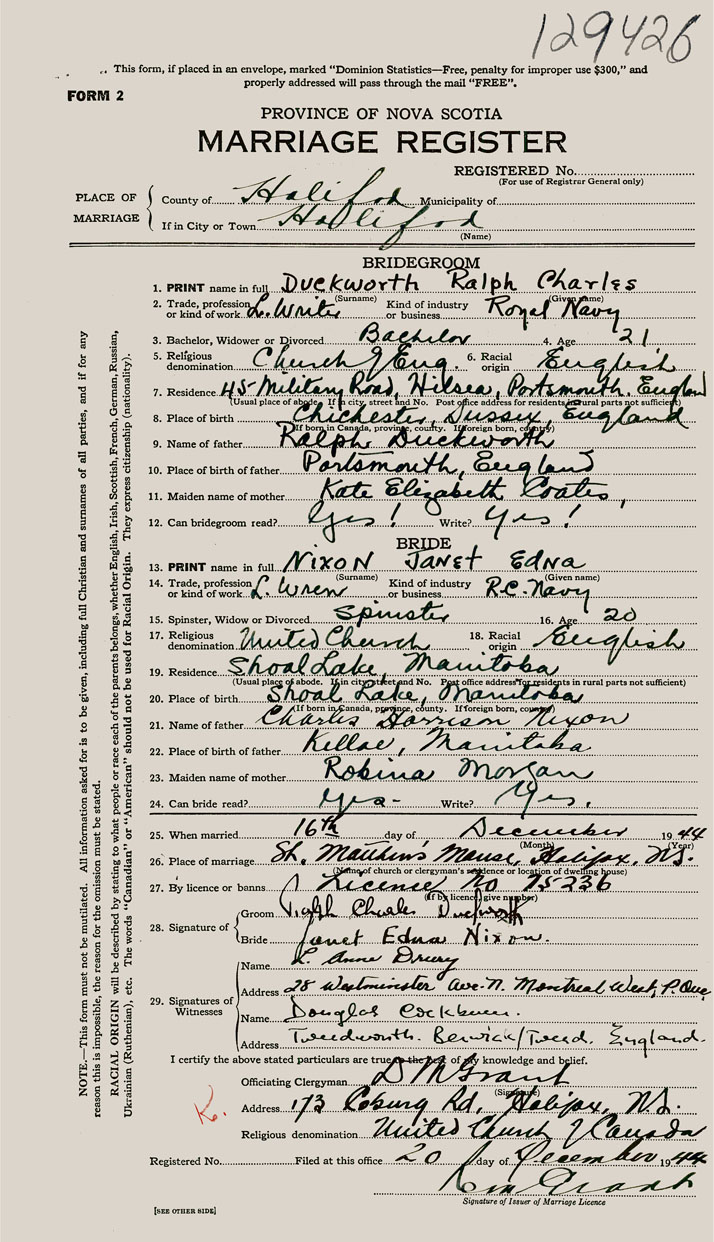 129426
This form, if placed in an envelope, marked "Dominion Statistics—Free, penalty for improper use $300," and
properly addressed will pass through the mail "FREE".
FORM 2
PROVINCE OF NOVA SCOTIA
MARRIAGE REGISTER
REGISTERED No.
(For use of Registrar General only)
PLACE OF MARRIAGE
County of Halifax Municipality of
If in City or Town Halifax
(Name)
BRIDEGROOM
1. PRINT name in full Duckworth Ralph Charles
(Surname) (Given name)
2. Trade, profession or kind of work L. Writer Kind of industry or business Royal Navy
3. Bachelor, Widower or Divorced Bachelor 4. Age 21
5. Religious denomination Church of Eng. 6. Racial origin English
7. Residence 45-Military Road, Hilsea, Portsmouth. England
(Usual place of abode. If in city, street and No. Post office address for residents in rural parts not sufficient)
8. Place of birth Chichester, Sussex, England
(If born in Canada, province, county. If foreign born, country)
9. Name of father Ralph Duckworth
10. Place of birth of father Portsmouth, England
11. Maiden name of mother Kate Elizabeth Coates,
12. Can bridegroom read? Yes! Write? Yes!
BRIDE
13. PRINT name in full Nixon Janet Edna
(Surname) (Given name)
14. Trade, profession or kind of work L. Wren Kind of industry or business R.C. Navy
15. Spinster, Widow or Divorced Spinster 16. Age 20
17. Religious denomination United Church 18. Racial origin English
19. Residence Shoal Lake, Manitoba
(Usual place of abode. If in city, street and No. Post office address for residents in rural parts not sufficient)
20. Place of birth Shoal Lake, Manitoba
(If born in Canada, province, county. If foreign born, country)
21. Name of father Charles Harrison Nixon
22. Place of birth of father Kelloe, Manitoba
23. Maiden name of mother Robina Morgan
24. Can bride read? Yes- Write? Yes.
25. When married 16th day of December 1944
(Month) (Year)
26. Place of marriage St. Matthew's Manse, Halifax, N.S.
(Name of church or clergyman's residence or location of dwelling house)
27. By licence or banns License No 75236
(If by licence, give number)
28. Signature of
Groom Ralph Charles Duckworth
Bride Janet Edna Nixon.
29. Signatures of Witnesses
Name L. Anne Drury
Address 28 Westminster Ave. N. Montreal West, P. Que
Name Douglas Cockburn.
Address Tweedworth. Berwick/Tweed. England.
I certify the above stated particulars are true to the best of my knowledge and belief.
Officiating Clergyman D M Grant
(Signature)
Address 173 Coburg Rd, Halifax, N.S.
K.
Religious denomination United Church of Canada
Registered No. Filed at this office 20 day of December 1944
Signature of Issuer of Marriage Licence
[SEE OTHER SIDE]
NOTE.—This form must not be mutilated. All information asked for is to be given, including full Christian and surnames of all parties, and if for any
reason this is impossible, the reason for the omission must be stated.
RACIAL ORIGIN will be described by stating to what people or race each of the parents belongs, whether English, Irish, Scottish, French, German, Russian,
Ukrainian (Ruthenian), etc. The words "Canadian" or "American" should not be used for Racial Origin. They express citizenship (nationality).